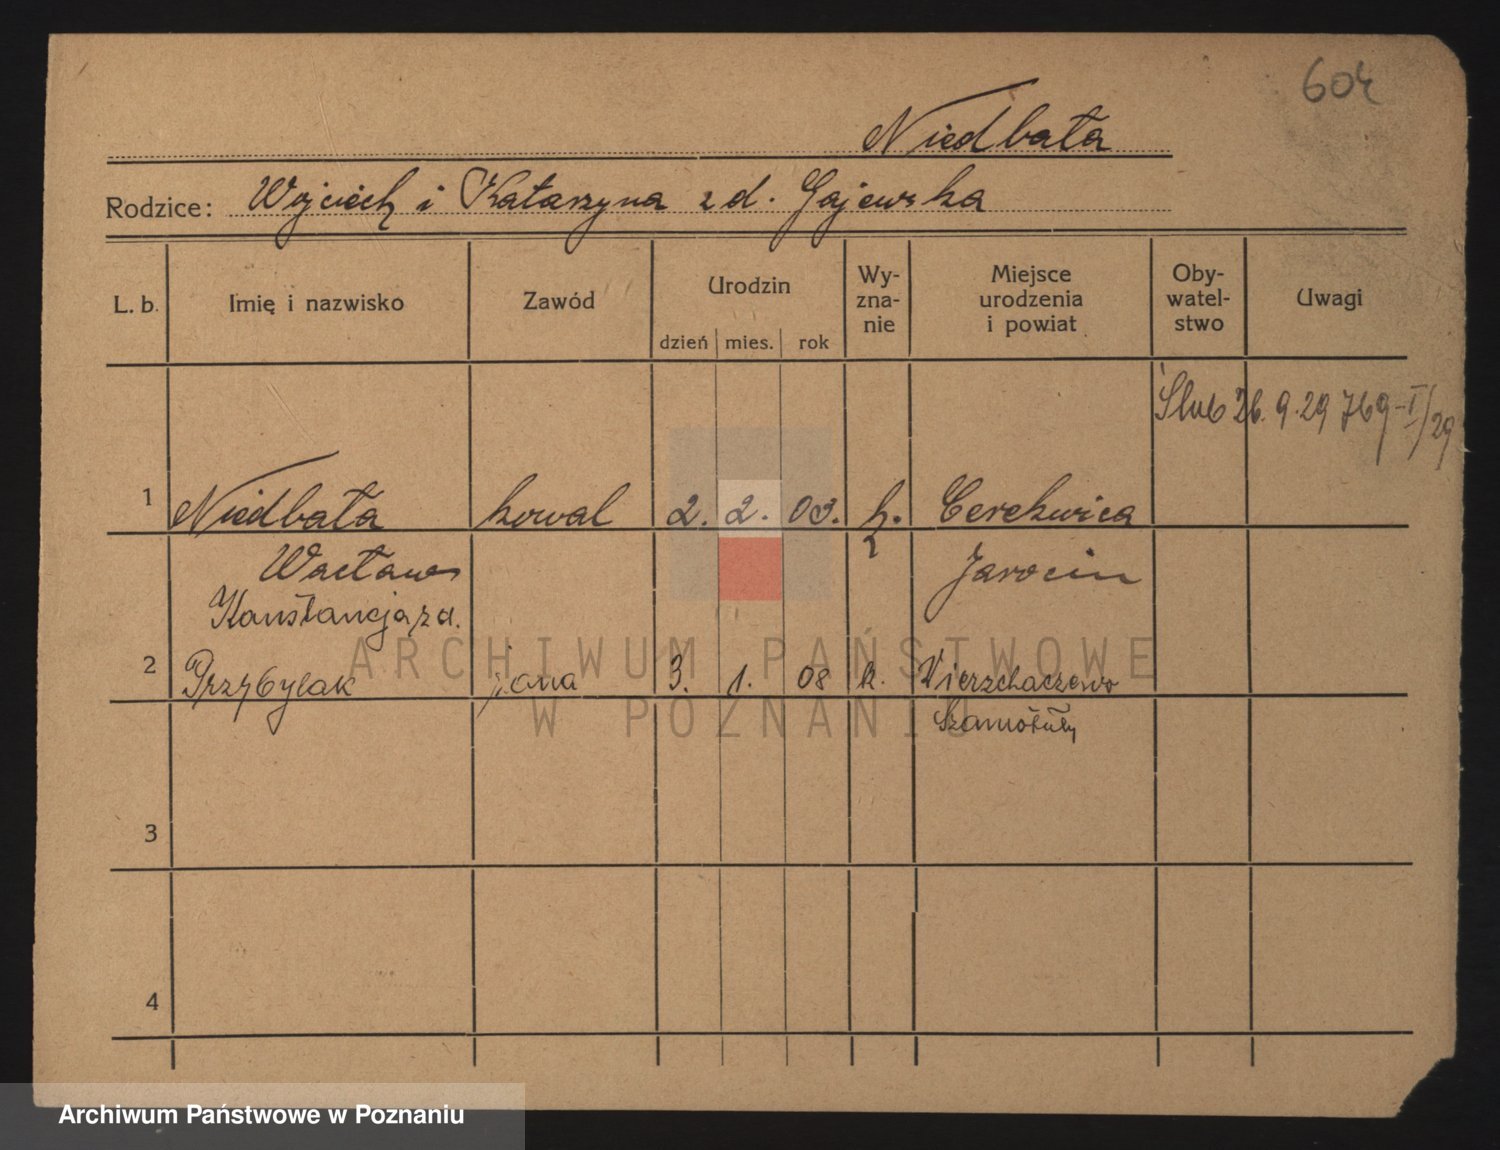 604
Niedbała
Rodzice: Wojciech i Katarzyna z d. Gajewska
L. b. Imię i nazwisko Zawód Urodzin dzień mies. rok Wy-zna-nie Miejsce urodzenia i powiat Oby-watel-stwo Uwagi
Ślub 26. 9. 29 769-I/29
1 Niedbała kowal 2. 2. 03. k. Cerekwica
Wacław Jarocin
Konstancja z d.
2 Przybylak żona 3. 1. 08 k. Wierzchaczewo
Szamotuły
3
4
ARCHIWUM PAŃSTWOWE
W POZNANIU
Archiwum Państwowe w Poznaniu